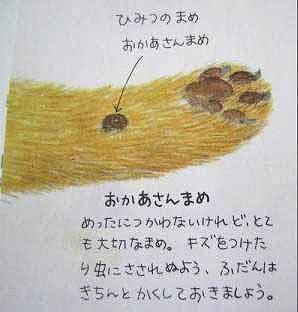 ひみつのまめ
おかあさんまめ
おかあさんまめ
めったにつかわないけれど、とて
も大切なまめ。キズをつけた
り虫にさされぬよう、ふだんは
きちんとかくしておきましょう。